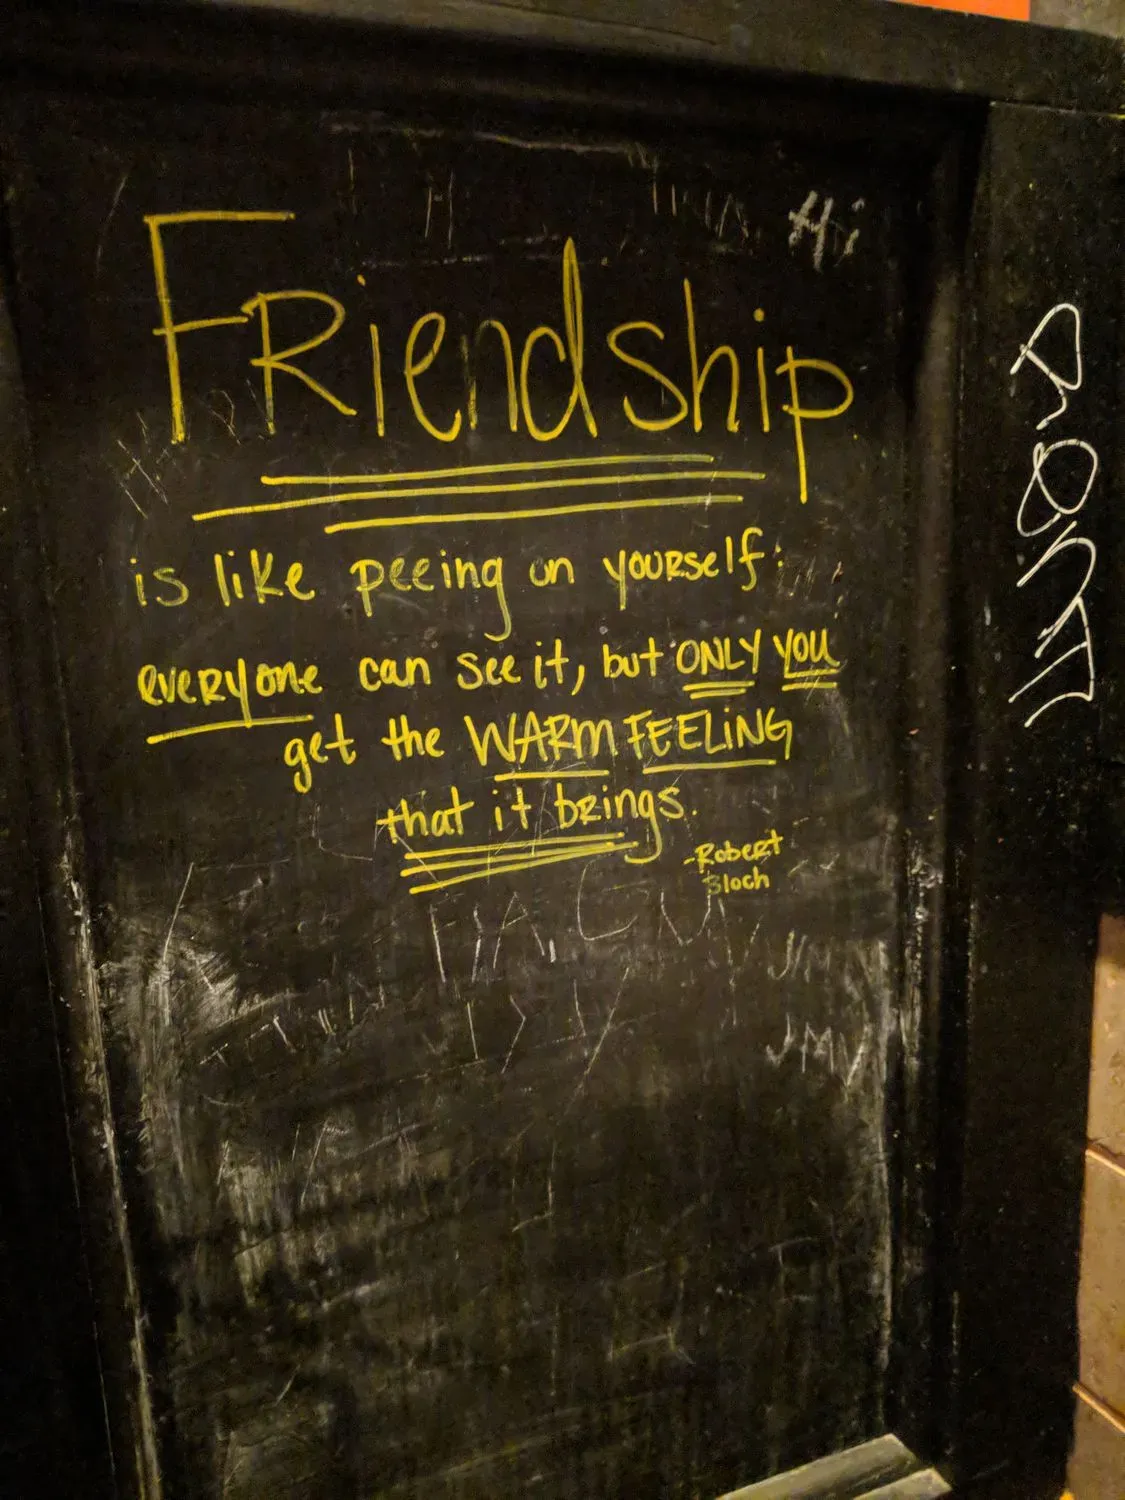 Hi
FRiendship
is like peeing on yourself:
everyone can see it, but ONLY YOU
get the WARM FEELING
that it brings.
-Robert
Bloch
JMN
JMN